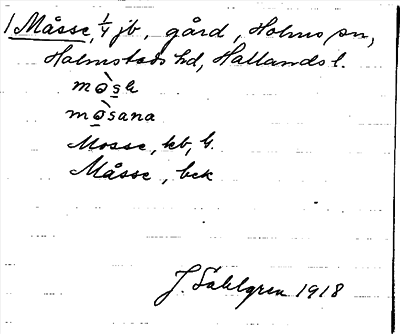 1 Måsse, 1/4 jb, gård, Holms sn,
Halmstads hd, Hallands l.
mò̱sa̱
mò̱sana
Mosse, kb, G.
Måsse, bck
J. Sahlgren 1918